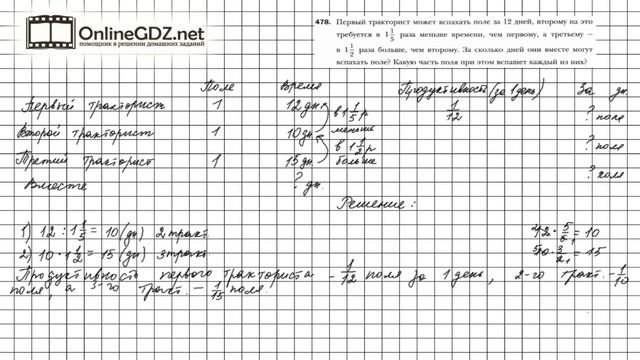 OnlineGDZ.net
помощник в решении домашних заданий
478. Первый тракторист может вспахать поле за 12 дней, второму на это
требуется в 1 1/5 раза меньше времени, чем первому, а третьему —
в 1 1/2 раза больше, чем второму. За сколько дней они вместе могут
вспахать поле? Какую часть поля при этом вспашет каждый из них?
Поле Время Продуктивность (за 1 день) За дн.
Первый тракторист 1 12 дн. в 1 1/5 р меньше 1/12 ? поле
Второй тракторист 1 10 дн. в 1 1/2 р больше ? поля
Третий тракторист 1 15 дн. ? поля
Вместе ? дн.
Решение:
1) 12 : 1 1/5 = 10 (дн) 2 тракт
2) 10 · 1 1/2 = 15 (дн) 3 тракт
12 · 5/6 = 10
10 · 3/2 = 15
Продуктивность первого тракториста - 1/12 поля за 1 день, 2-го тракт. - 1/10
поля, а 3-го тракт. — 1/15 поля.